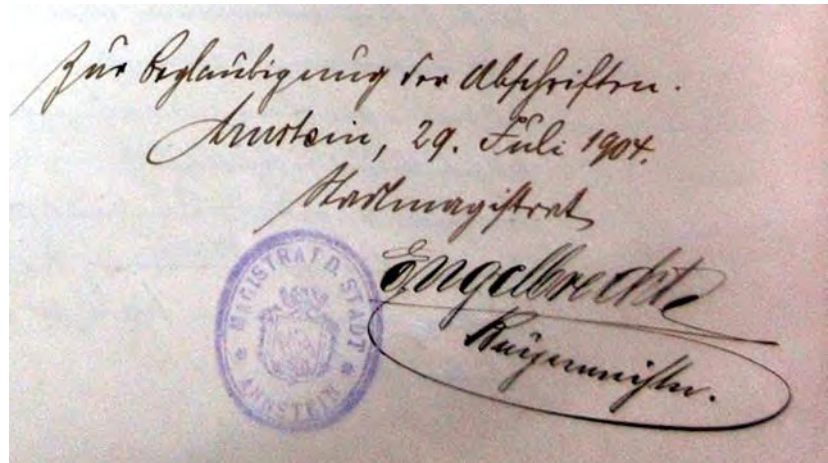 Zur Beglaubigung der Abschriften.
Arnstein, 29. Juli 1904.
Stadtmagistrat
Engelbrecht
Bürgermeister.
MAGISTRAT D. STADT
* ARNSTEIN *